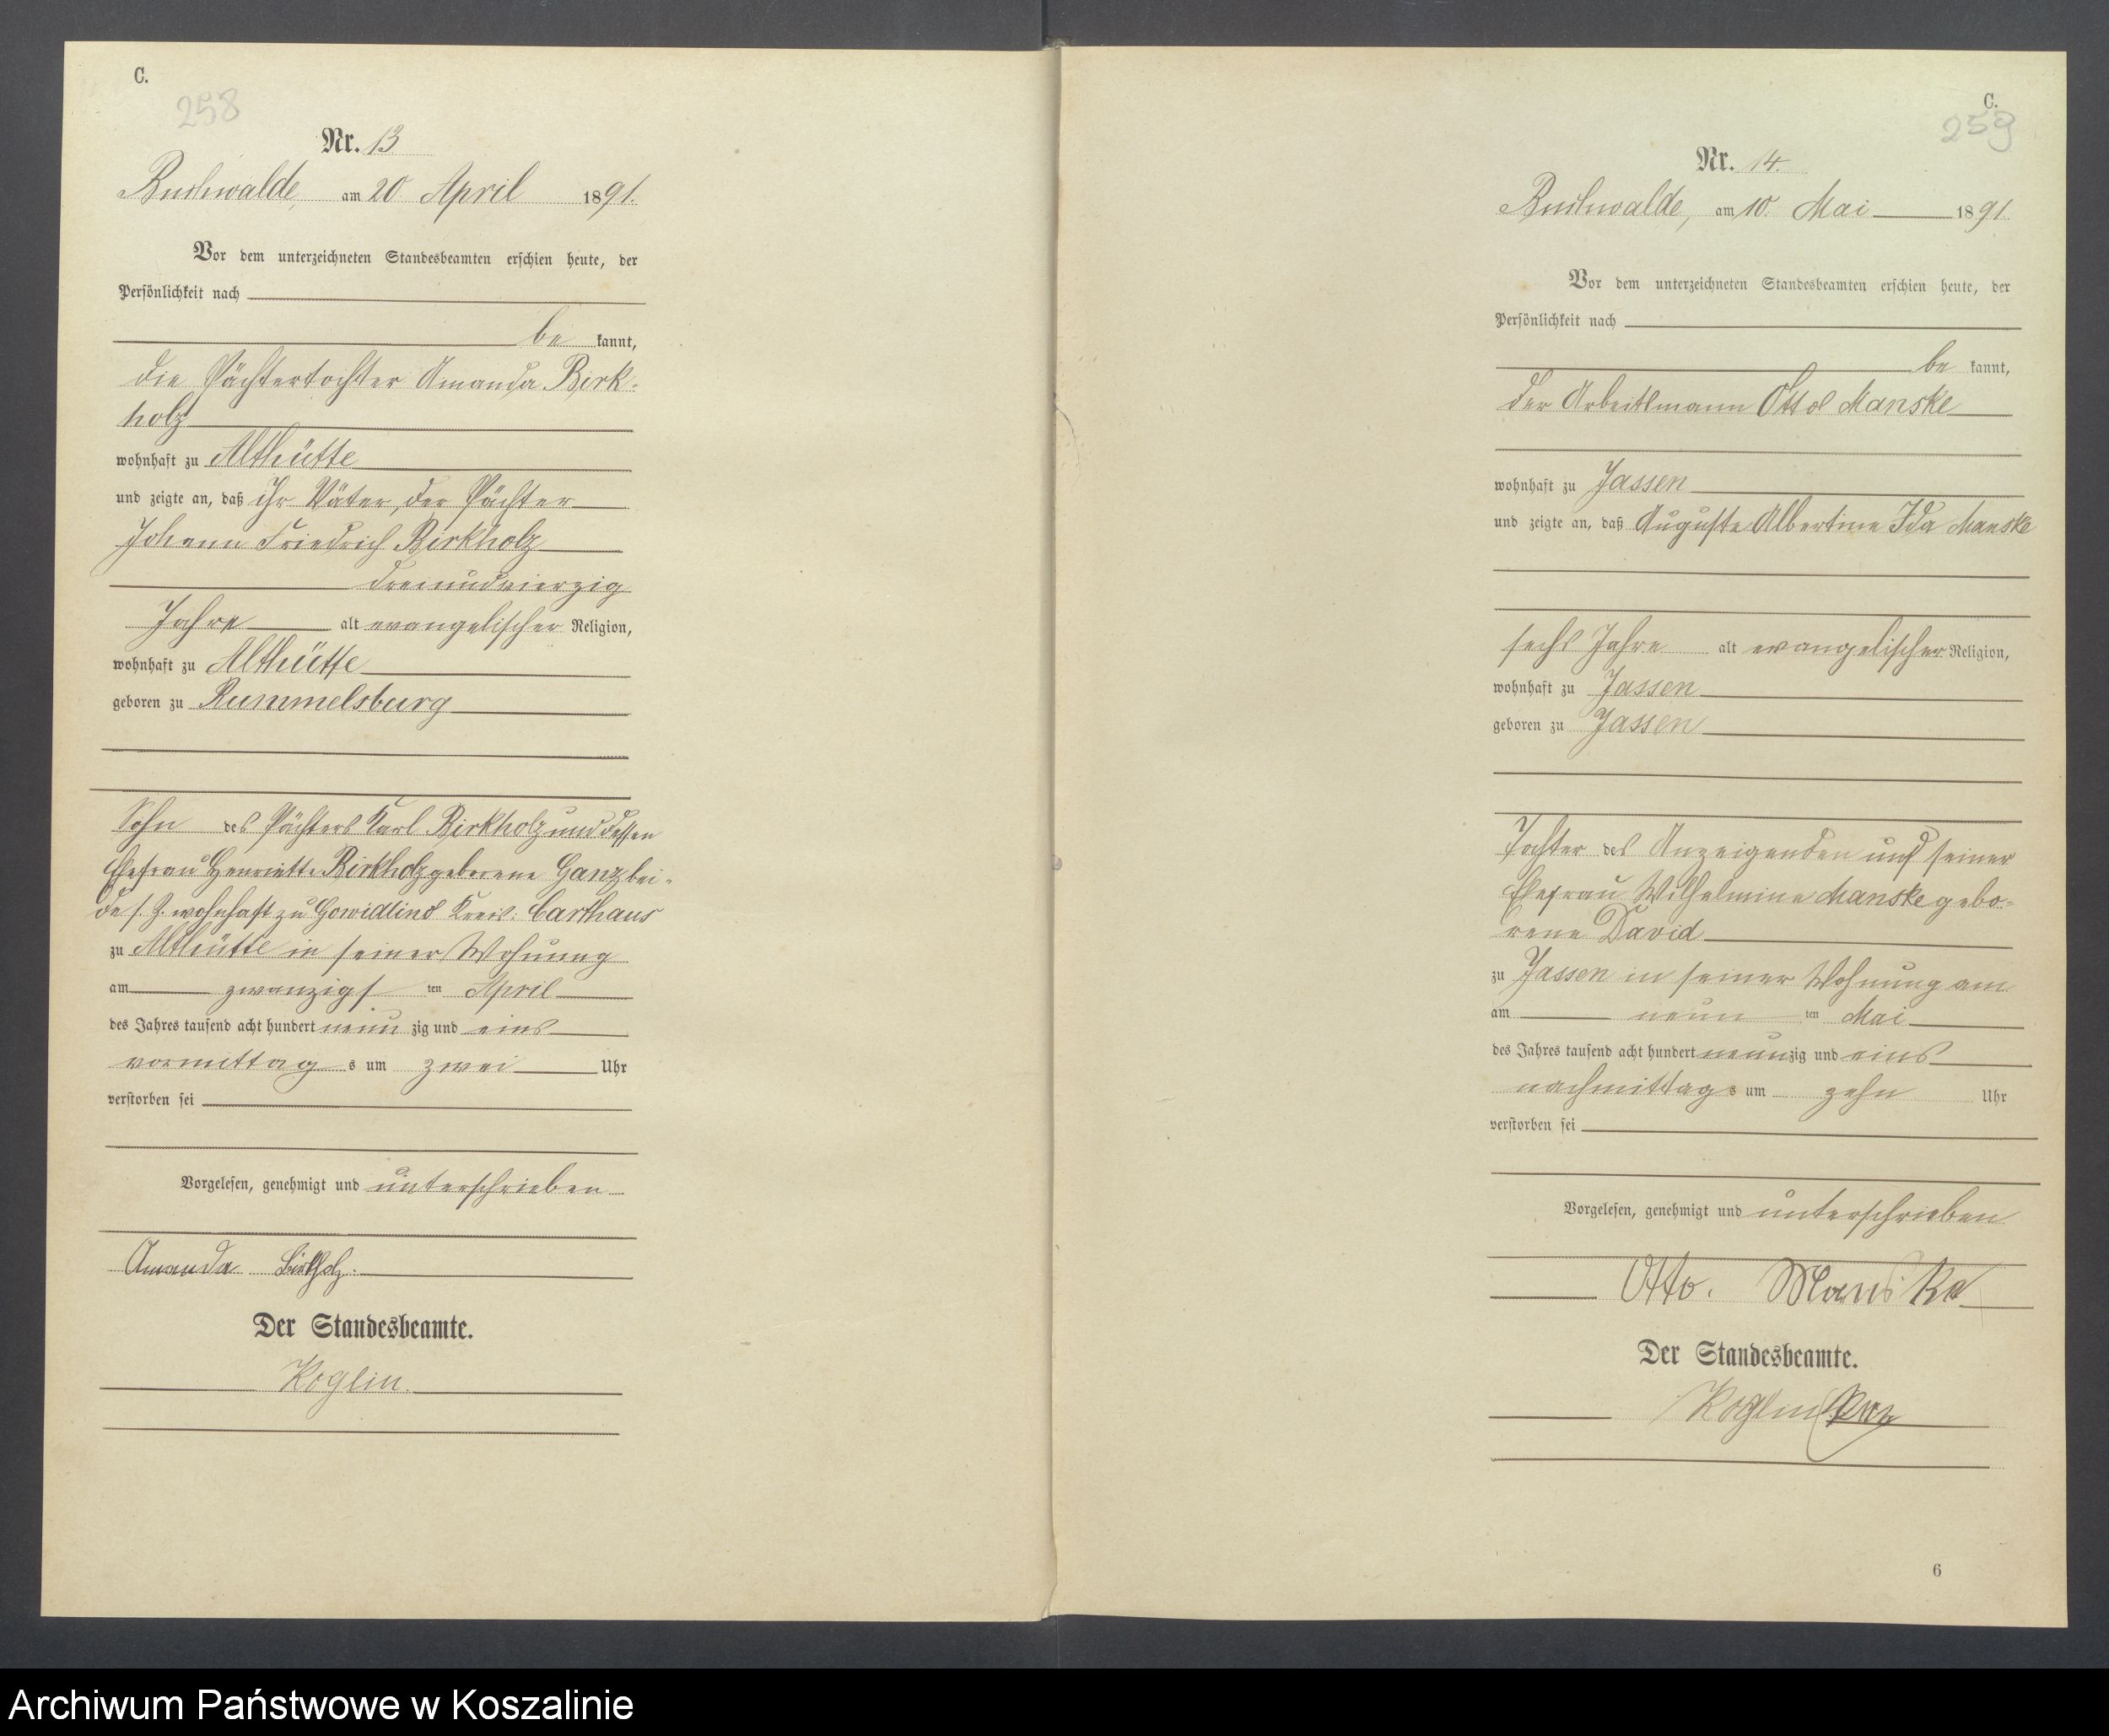 C.
258
Nr. 13
Buchwalde, am 20 April 1891.
Vor dem unterzeichneten Standesbeamten erschien heute, der
Persönlichkeit nach
be kannt,
die Pächtertochter Amanda Birk-
holz
wohnhaft zu Althütte
und zeigte an, daß ihr Vater, der Pächter
Johann Friedrich Birkholz
dreiundvierzig
Jahre alt evangelischer Religion,
wohnhaft zu Althütte
geboren zu Rummelsburg
Sohn des Pächters Karl Birkholz und dessen
Ehefrau Henriette Birkholz geborene Ganz bei-
de s. Z. wohnhaft zu Gowidlino Kreis: Carthaus
zu Althütte in seiner Wohnung
am zwanzigs ten April
des Jahres tausend acht hundert neun zig und eins
vormittag s um zwei Uhr
verstorben sei
Vorgelesen, genehmigt und unterschrieben
Amanda Birkholz.
Der Standesbeamte.
Koglin.
C.
259
Nr. 14.
Buchwalde, am 10. Mai 1891
Vor dem unterzeichneten Standesbeamten erschien heute, der
Persönlichkeit nach
be kannt,
der Arbeitsmann Otto Manske
wohnhaft zu Jassen
und zeigte an, daß Auguste Albertine Ida Manske
sechs Jahre alt evangelischer Religion,
wohnhaft zu Jassen
geboren zu Jassen
Tochter des Anzeigenden und seiner
Ehefrau Wilhelmine Manske gebo-
rene David
zu Jassen in seiner Wohnung am
am neun ten Mai
des Jahres tausend acht hundert neunzig und eins
nachmittag s um zehn Uhr
verstorben sei
Vorgelesen, genehmigt und unterschrieben
Otto. Manske
Der Standesbeamte.
Koglin
6
Archiwum Państwowe w Koszalinie